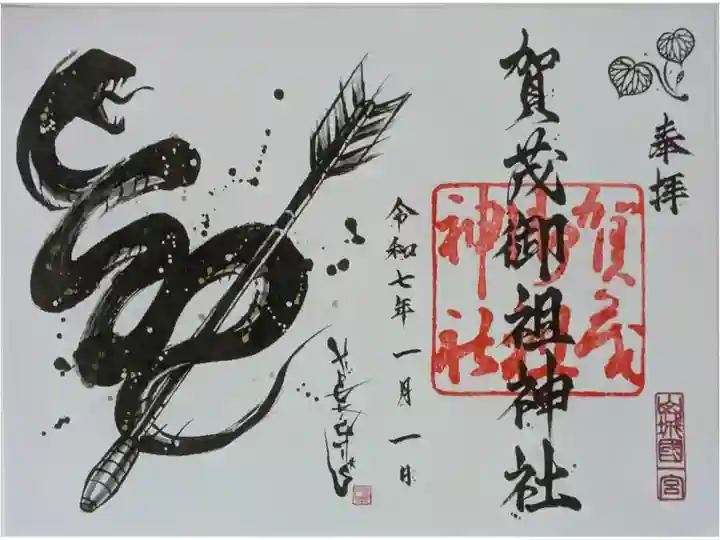 奉拝
賀茂御祖神社
賀茂
御祖
神社
山城國一宮
令和七年 一月 一日